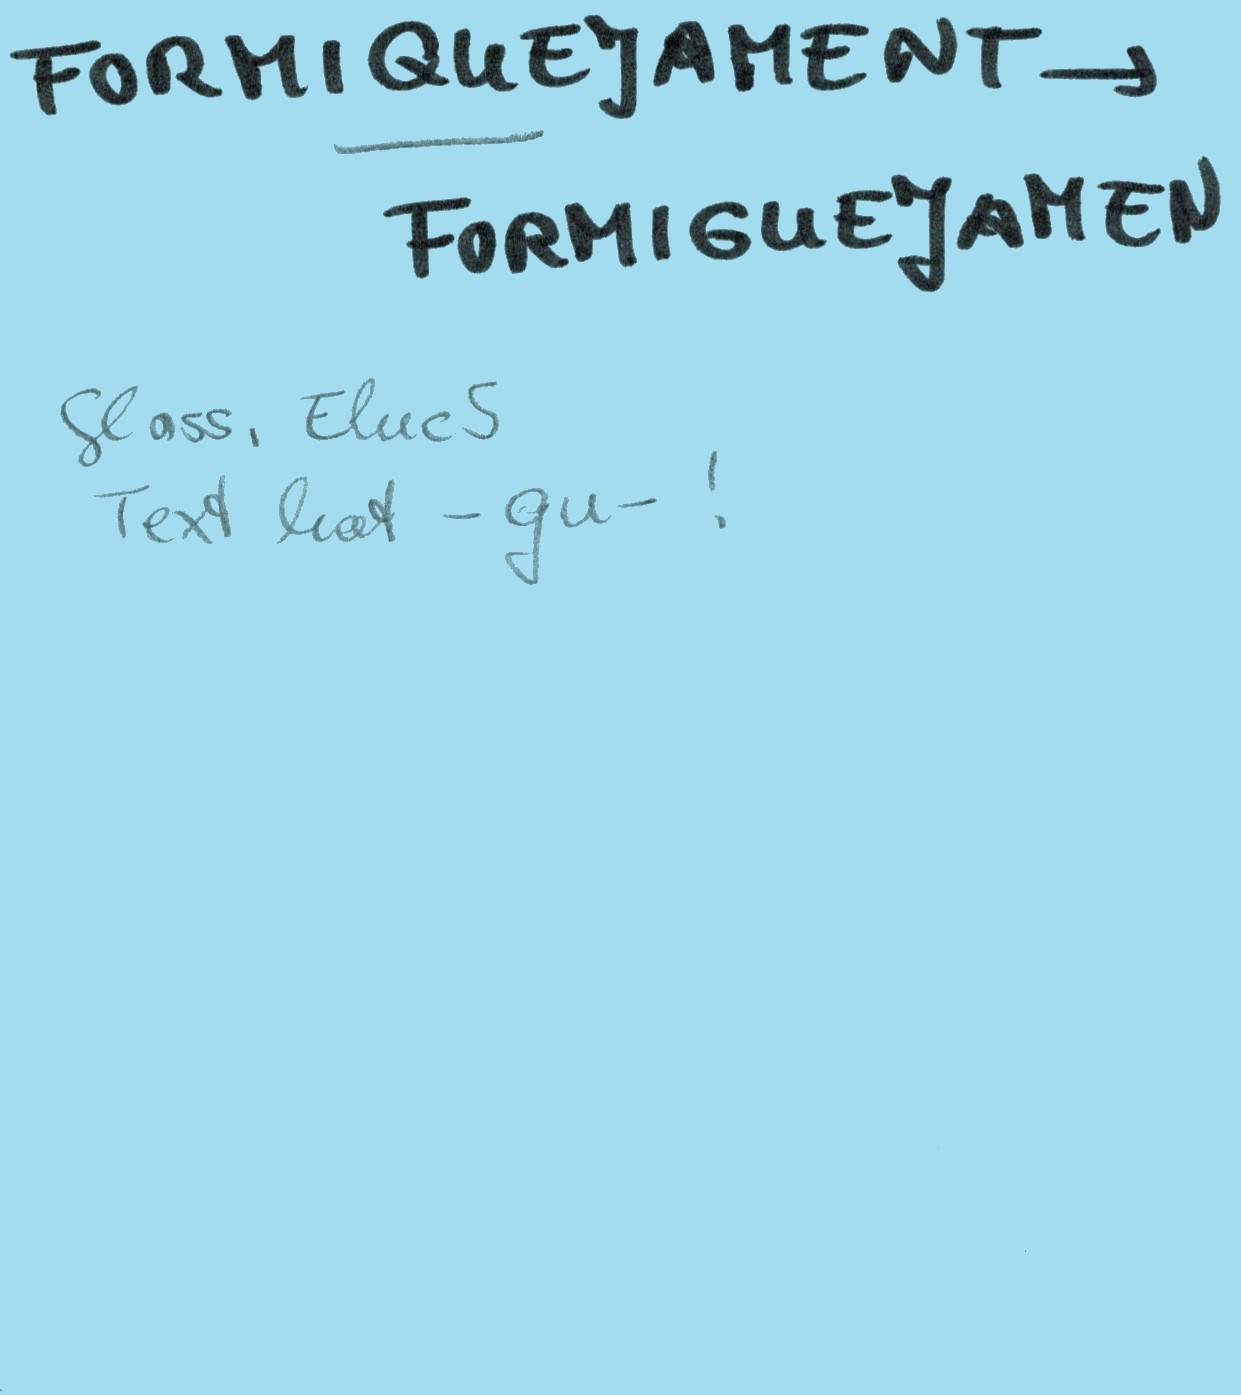 FORMIQUEJAMENT →
FORMIGUEJAMEN
Gloss. Eluc S
Text hat -gu- !